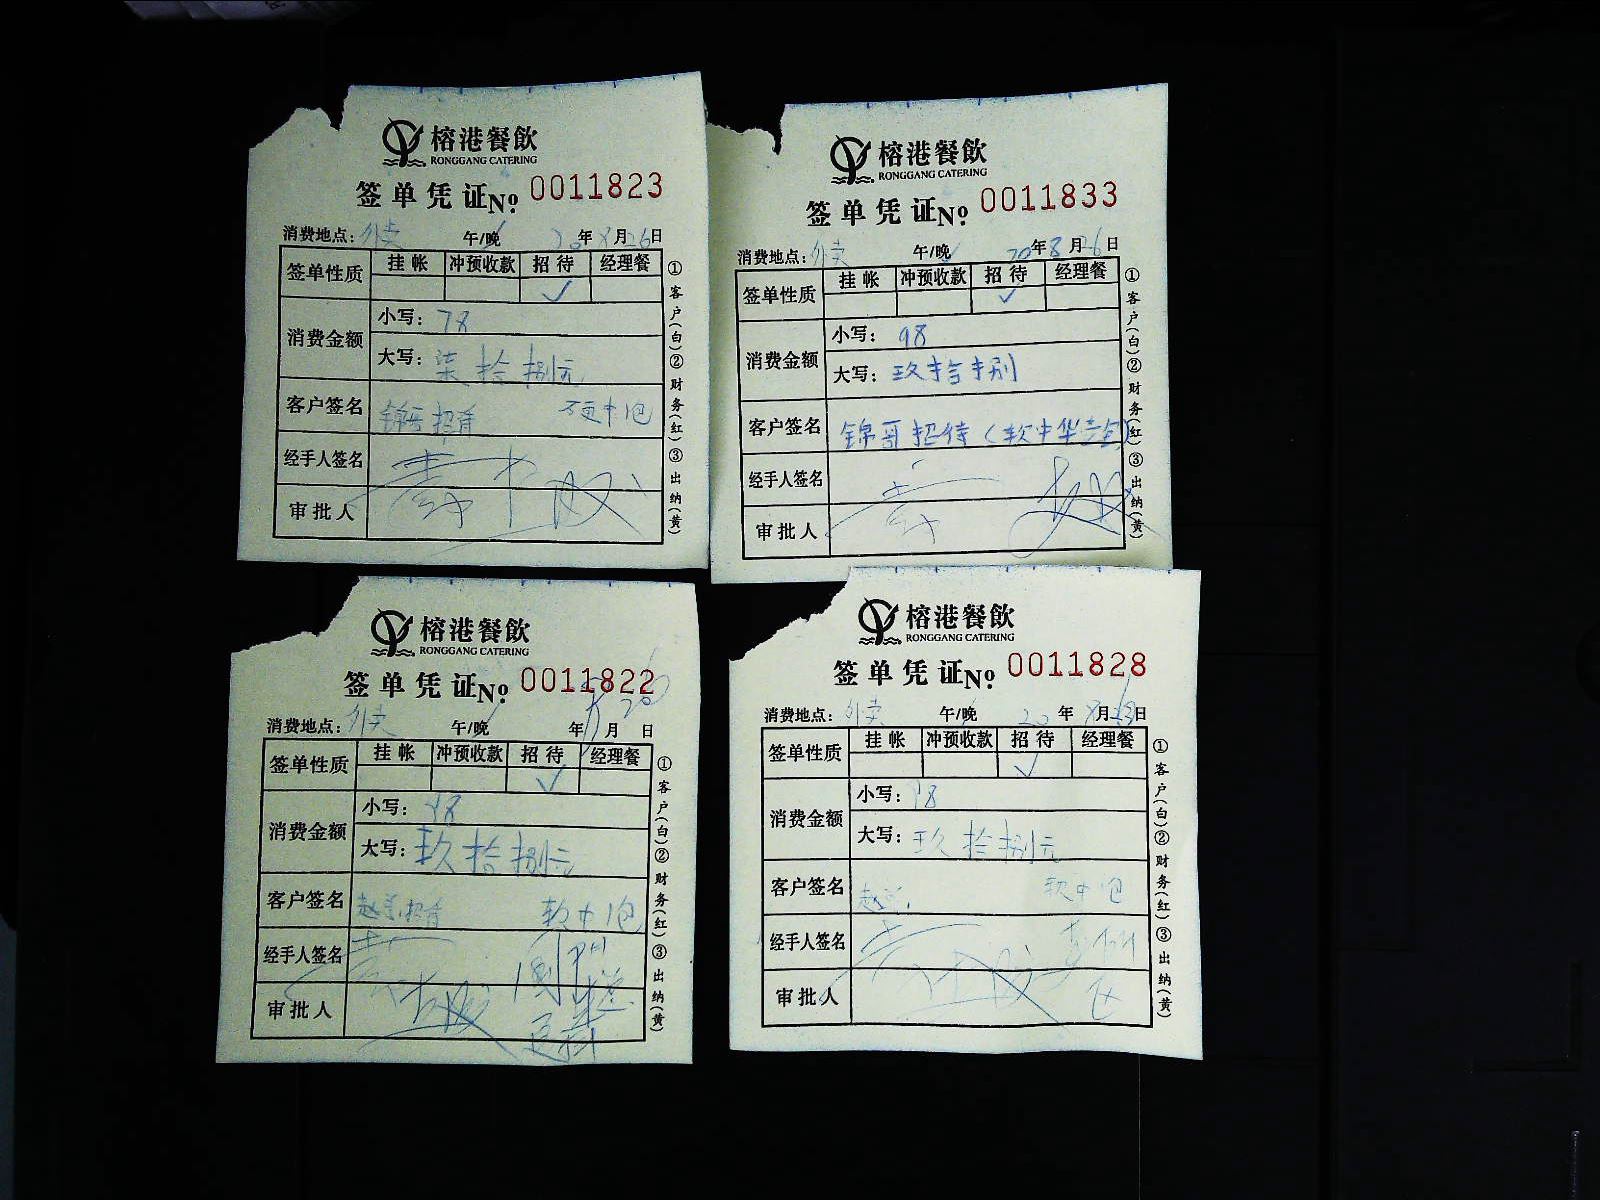 榕港餐飲
RONGGANG CATERING
签单凭证 No. 0011823
消费地点：外卖 午/晚 20年8月26日
签单性质 挂帐 冲预收款 招待 经理餐
✓
消费金额 小写：78
大写：柒拾捌元
客户签名 锦哥招待 硬中1包
经手人签名
审批人
①客户(白)②财务(红)③出纳(黄)
榕港餐飲
RONGGANG CATERING
签单凭证 No. 0011833
消费地点：外卖 午/晚 20年8月26日
签单性质 挂帐 冲预收款 招待 经理餐
✓
消费金额 小写：98
大写：玖拾捌
客户签名 锦哥招待（软中华壹包）
经手人签名
审批人
①客户(白)②财务(红)③出纳(黄)
榕港餐飲
RONGGANG CATERING
签单凭证 No. 0011822
消费地点：外卖 午/晚 年 月 日
签单性质 挂帐 冲预收款 招待 经理餐
✓
消费金额 小写：98
大写：玖拾捌元
客户签名 赵总招待 软中1包
经手人签名
审批人
①客户(白)②财务(红)③出纳(黄)
榕港餐飲
RONGGANG CATERING
签单凭证 No. 0011828
消费地点：外卖 午/晚 20年8月 日
签单性质 挂帐 冲预收款 招待 经理餐
✓
消费金额 小写：98
大写：玖拾捌元
客户签名 赵总 软中1包
经手人签名
审批人
①客户(白)②财务(红)③出纳(黄)